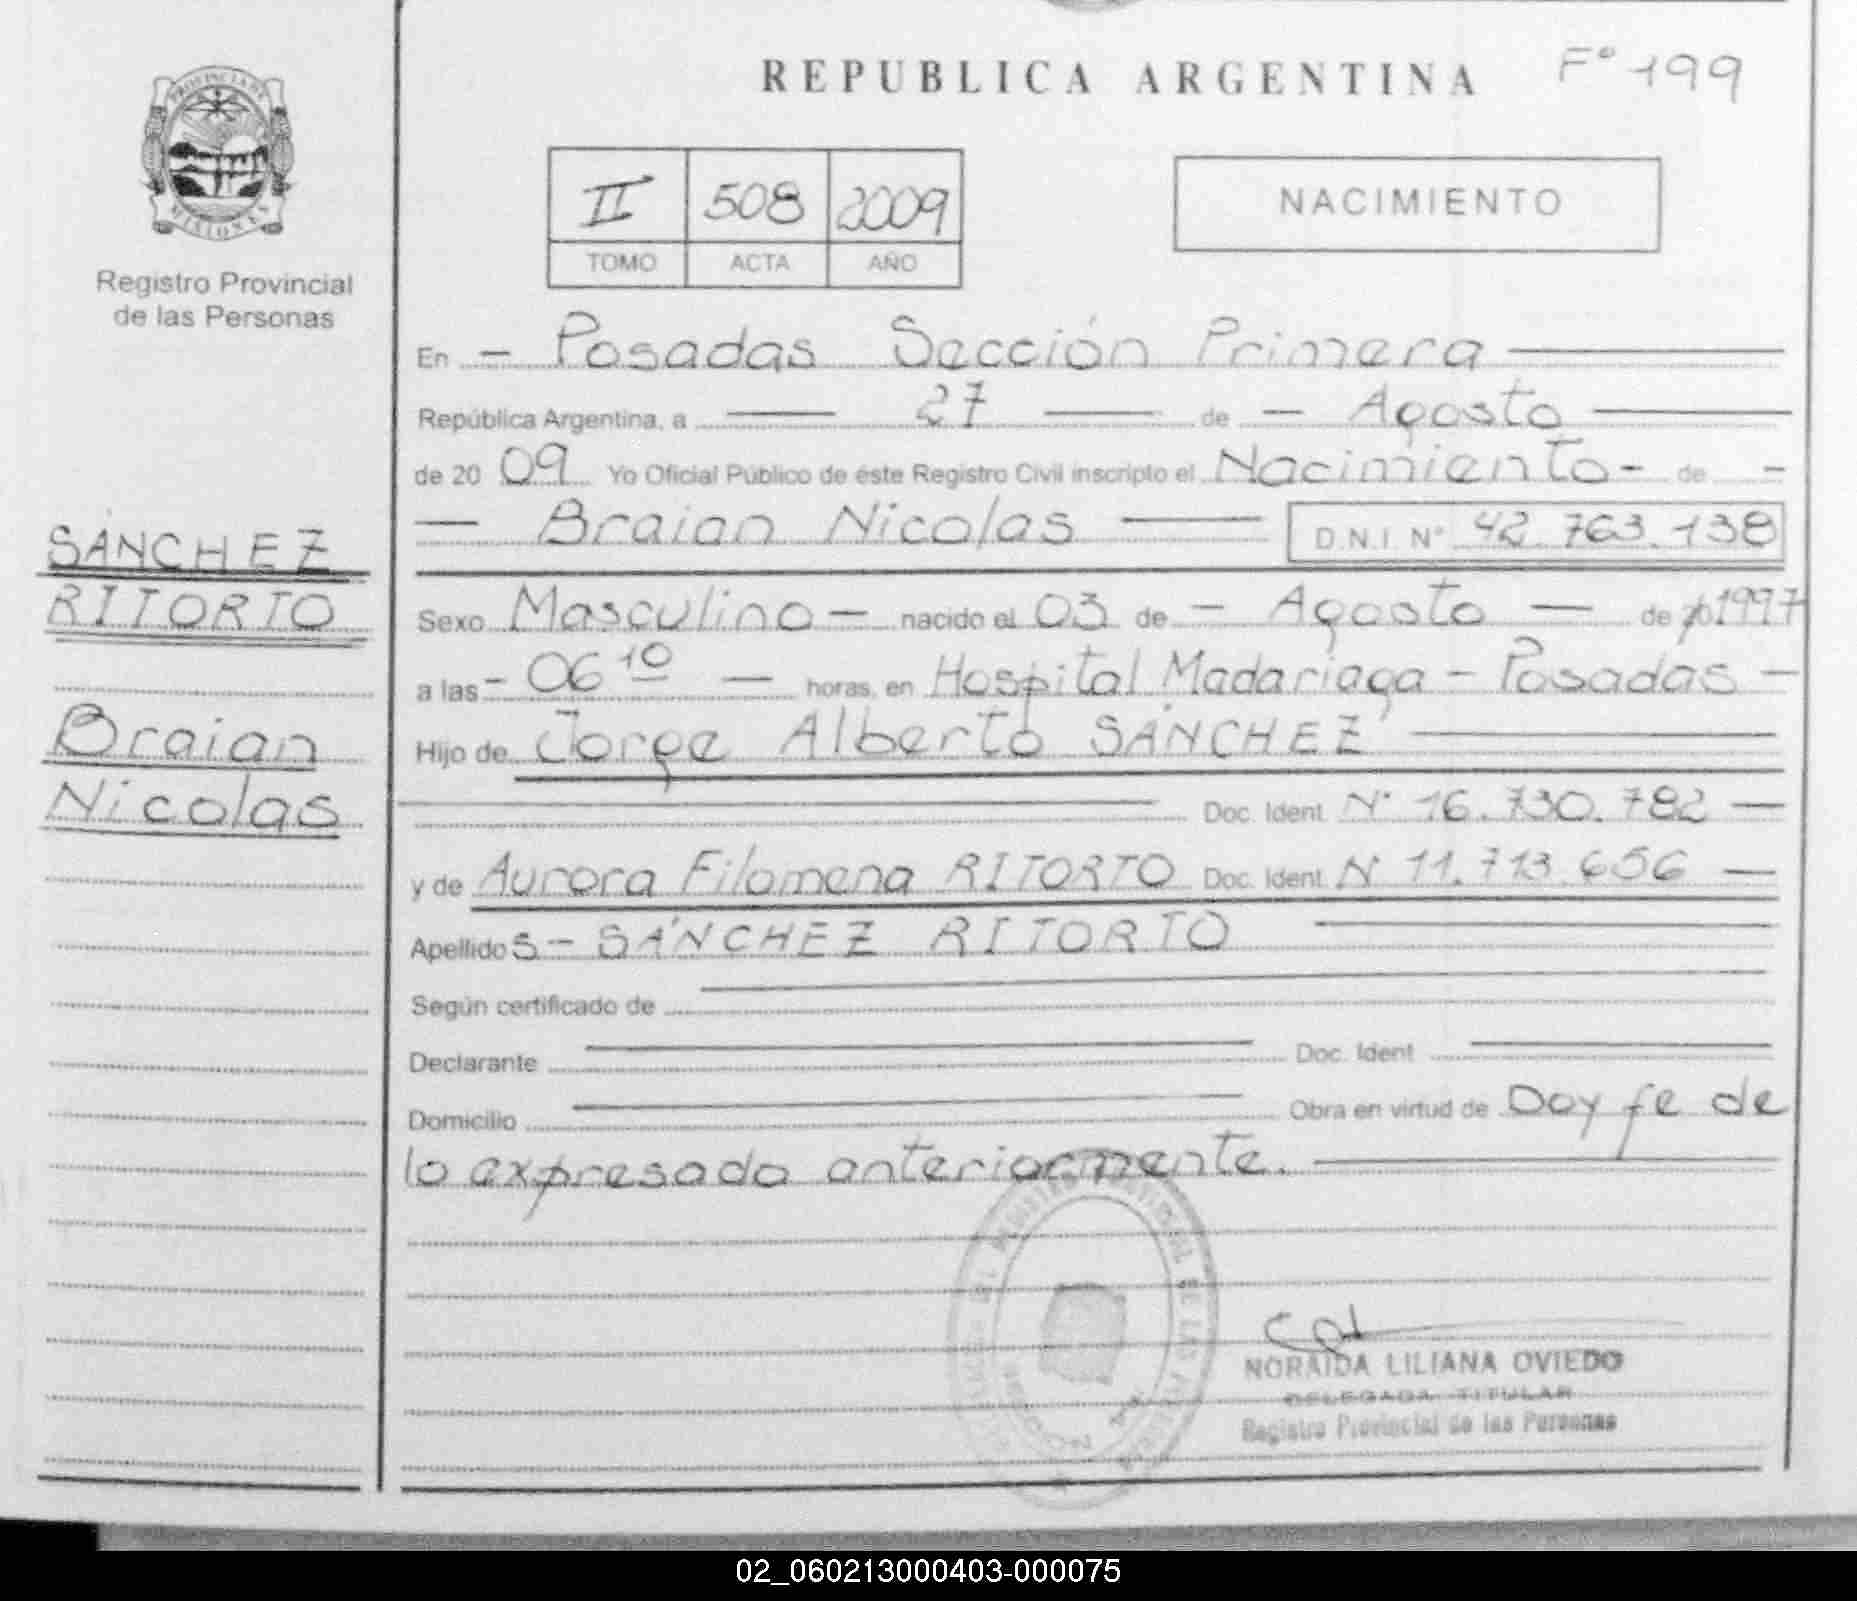 REPUBLICA ARGENTINA Fº 199
PROVINCIA DE
MISIONES
Registro Provincial
de las Personas
II 508 2009
TOMO ACTA AÑO
NACIMIENTO
En - Posadas Sección Primera
República Argentina, a 27 de - Agosto
de 20 09 Yo Oficial Público de éste Registro Civil inscripto el Nacimiento - de -
- Braian Nicolas D.N.I. Nº 42.763.138
SÁNCHEZ
RITORTO
Braian
Nicolas
Sexo Masculino - nacido el 03 de - Agosto - de 1997
a las - 06 10 - horas, en Hospital Madariaga - Posadas -
Hijo de Jorge Alberto SÁNCHEZ
Doc. Ident Nº 16.730.782 -
y de Aurora Filomena RITORTO Doc. Ident N 11.713.656 -
Apellidos - SÁNCHEZ RITORTO
Según certificado de
Declarante Doc. Ident
Domicilio Obra en virtud de Doy fe de
lo expresado anteriormente.
NORAIDA LILIANA OVIEDO
DELEGADA TITULAR
Registro Provincial de las Personas
02_060213000403-000075